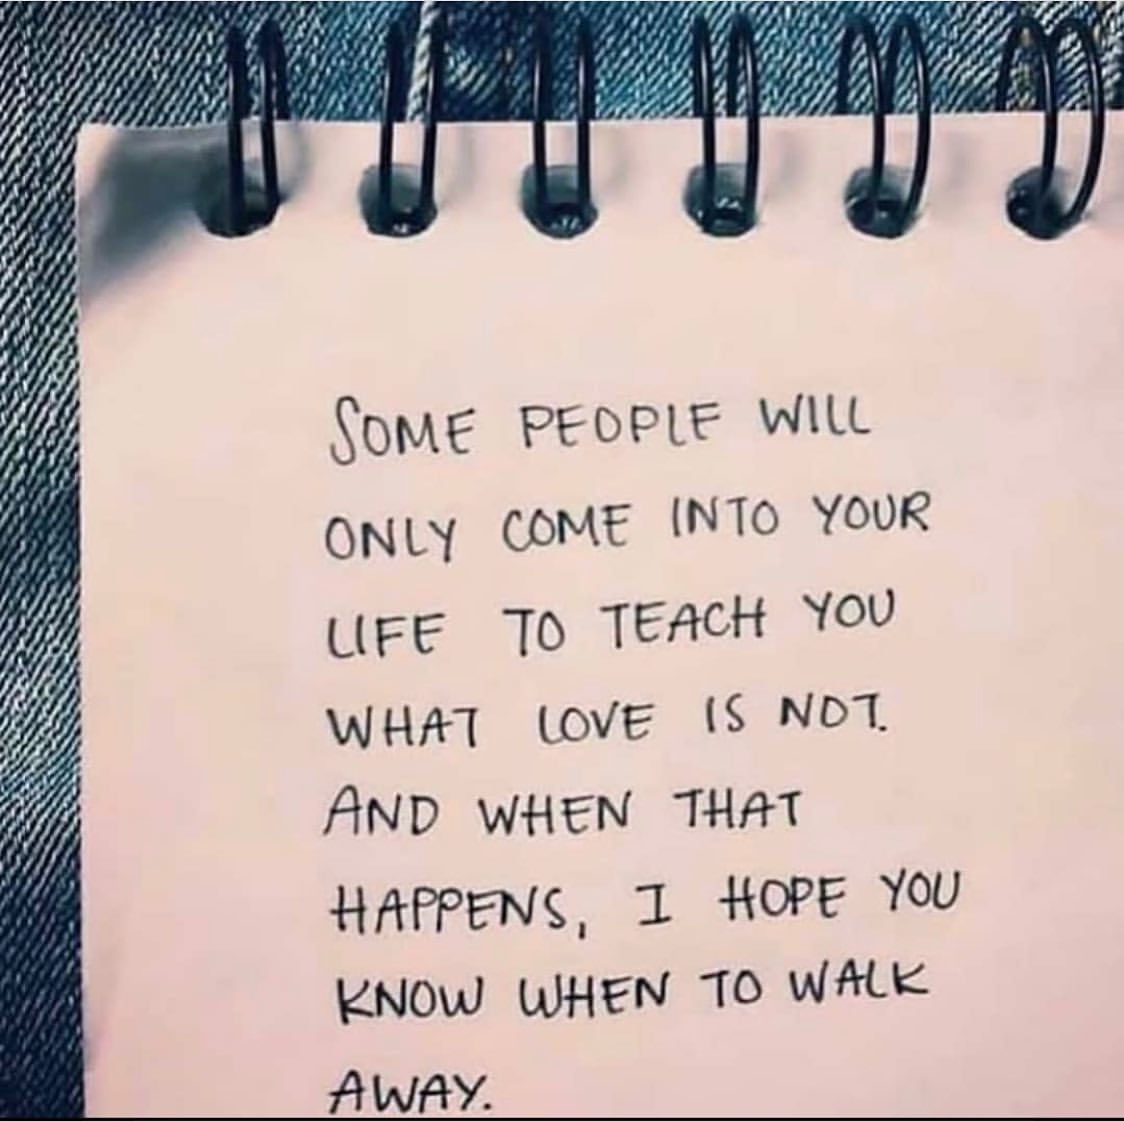 SOME PEOPLE WILL
ONLY COME INTO YOUR
LIFE TO TEACH YOU
WHAT LOVE IS NOT.
AND WHEN THAT
HAPPENS, I HOPE YOU
KNOW WHEN TO WALK
AWAY.